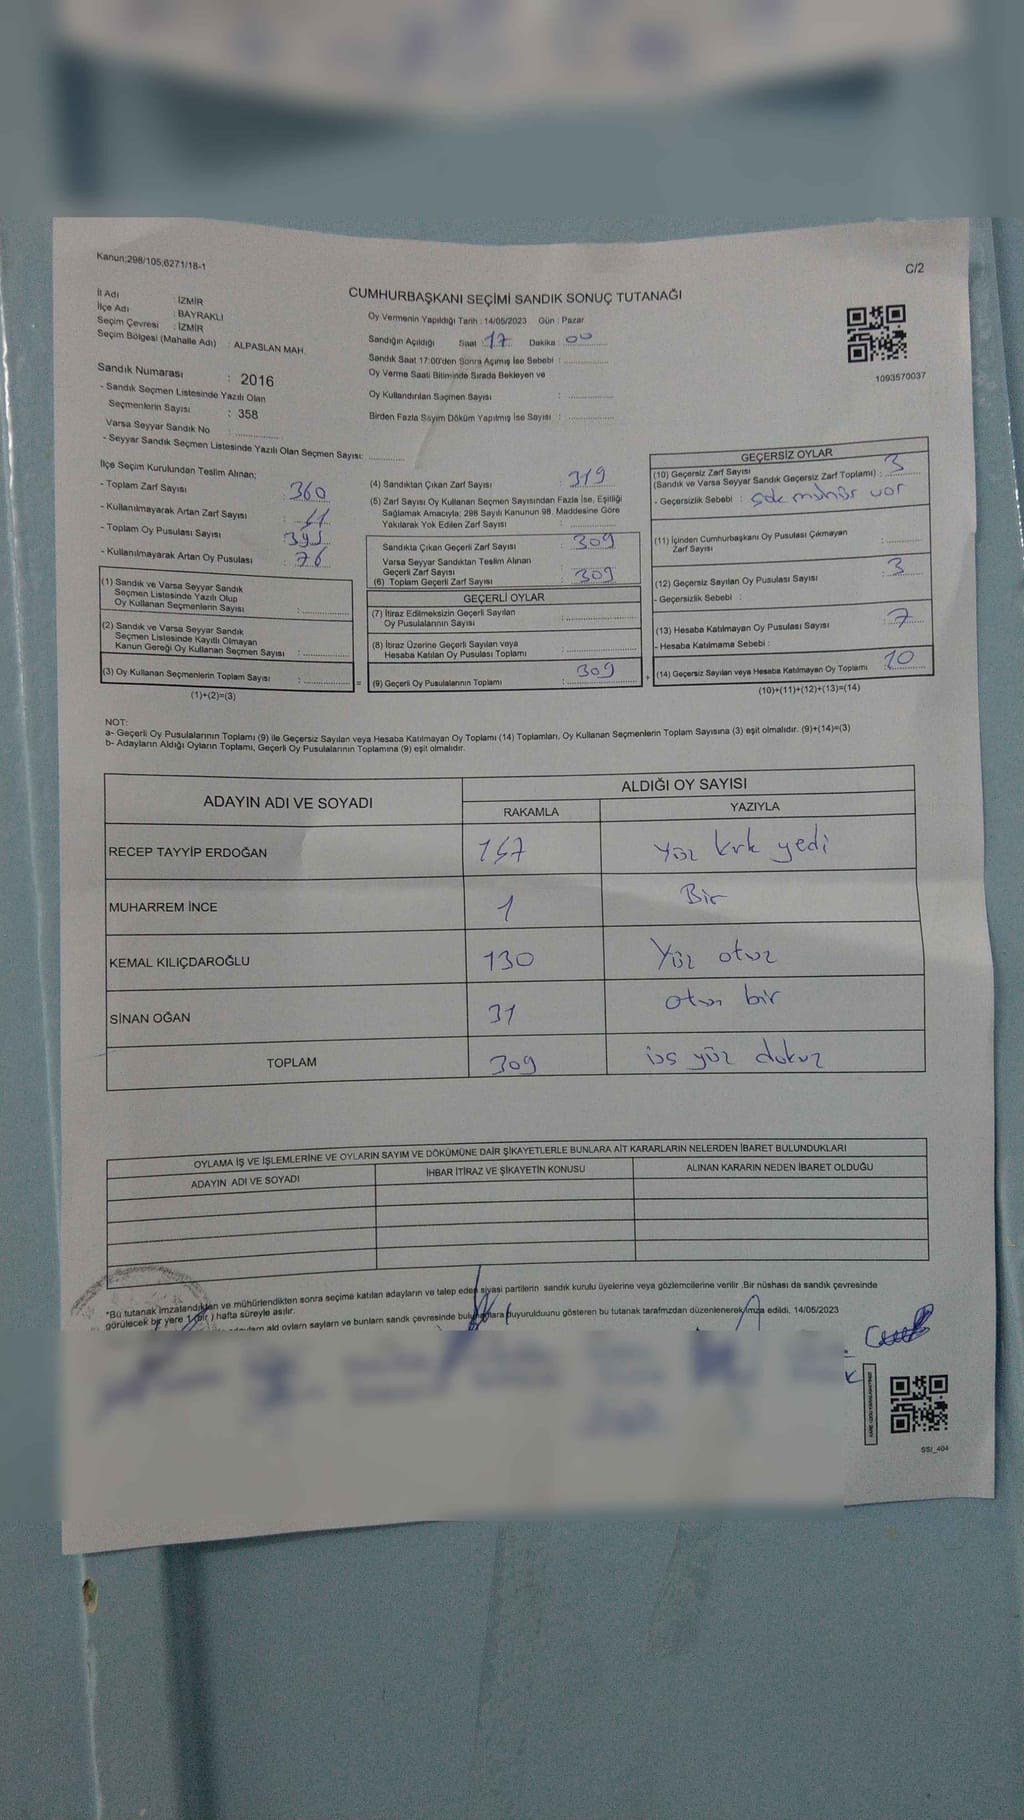 Kanun;298/105;6271/18-1
C/2
CUMHURBAŞKANI SEÇİMİ SANDIK SONUÇ TUTANAĞI
İl Adı : İZMİR
İlçe Adı : BAYRAKLI
Seçim Çevresi : İZMİR
Seçim Bölgesi (Mahalle Adı) : ALPASLAN MAH.
Sandık Numarası : 2016
- Sandık Seçmen Listesinde Yazılı Olan
Seçmenlerin Sayısı : 358
Varsa Seyyar Sandık No :
- Seyyar Sandık Seçmen Listesinde Yazılı Olan Seçmen Sayısı:
Oy Vermenin Yapıldığı Tarih : 14/05/2023 Gün : Pazar
Sandığın Açıldığı Saat : 17 Dakika : 00
Sandık Saat 17:00'den Sonra Açımış İse Sebebi :
Oy Verme Saati Bitiminde Sırada Bekleyen ve
Oy Kullandırılan Seçmen Sayısı :
Birden Fazla Sayım Döküm Yapılmış İse Sayısı :
1093570037
İlçe Seçim Kurulundan Teslim Alınan;
- Toplam Zarf Sayısı : 360
- Kullanılmayarak Artan Zarf Sayısı :
- Toplam Oy Pusulası Sayısı :
- Kullanılmayarak Artan Oy Pusulası : 76
(1) Sandık ve Varsa Seyyar Sandık
Seçmen Listesinde Yazılı Olup
Oy Kullanan Seçmenlerin Sayısı :
(2) Sandık ve Varsa Seyyar Sandık
Seçmen Listesinde Kayıtlı Olmayan
Kanun Gereği Oy Kullanan Seçmen Sayısı :
(3) Oy Kullanan Seçmenlerin Toplam Sayısı :
(1)+(2)=(3)
=
(4) Sandıktan Çıkan Zarf Sayısı : 319
(5) Zarf Sayısı Oy Kullanan Seçmen Sayısından Fazla İse, Eşitliği
Sağlamak Amacıyla; 298 Sayılı Kanunun 98. Maddesine Göre
Yakılarak Yok Edilen Zarf Sayısı :
Sandıkta Çıkan Geçerli Zarf Sayısı : 309
Varsa Seyyar Sandıktan Teslim Alınan
Geçerli Zarf Sayısı :
(6) Toplam Geçerli Zarf Sayısı : 309
GEÇERLİ OYLAR
(7) İtiraz Edilmeksizin Geçerli Sayılan
Oy Pusulalarının Sayısı :
(8) İtiraz Üzerine Geçerli Sayılan veya
Hesaba Katılan Oy Pusulası Toplamı :
(9) Geçerli Oy Pusulalarının Toplamı : 309
+
GEÇERSİZ OYLAR
(10) Geçersiz Zarf Sayısı
(Sandık ve Varsa Seyyar Sandık Geçersiz Zarf Toplamı) : 3
- Geçersizlik Sebebi : var
(11) İçinden Cumhurbaşkanı Oy Pusulası Çıkmayan
Zarf Sayısı :
(12) Geçersiz Sayılan Oy Pusulası Sayısı : 3
- Geçersizlik Sebebi :
(13) Hesaba Katılmayan Oy Pusulası Sayısı : 7
- Hesaba Katılmama Sebebi :
(14) Geçersiz Sayılan veya Hesaba Katılmayan Oy Toplamı : 10
(10)+(11)+(12)+(13)=(14)
NOT:
a- Geçerli Oy Pusulalarının Toplamı (9) ile Geçersiz Sayılan veya Hesaba Katılmayan Oy Toplamı (14) Toplamları, Oy Kullanan Seçmenlerin Toplam Sayısına (3) eşit olmalıdır. (9)+(14)=(3)
b- Adayların Aldığı Oyların Toplamı, Geçerli Oy Pusulalarının Toplamına (9) eşit olmalıdır.
ADAYIN ADI VE SOYADI
ALDIĞI OY SAYISI
RAKAMLA YAZIYLA
RECEP TAYYİP ERDOĞAN 147 Yüz kırk yedi
MUHARREM İNCE 1 Bir
KEMAL KILIÇDAROĞLU 130 Yüz otuz
SİNAN OĞAN 31 otuz bir
TOPLAM 309 üç yüz dokuz
OYLAMA İŞ VE İŞLEMLERİNE VE OYLARIN SAYIM VE DÖKÜMÜNE DAİR ŞİKAYETLERLE BUNLARA AİT KARARLARIN NELERDEN İBARET BULUNDUKLARI
ADAYIN ADI VE SOYADI İHBAR İTİRAZ VE ŞİKAYETİN KONUSU ALINAN KARARIN NEDEN İBARET OLDUĞU
*Bu tutanak imzalandıkten ve mühürlendikten sonra seçime katılan adayların ve talep eden siyasi partilerin sandık kurulu üyelerine veya gözlemcilerine verilir .Bir nüshası da sandık çevresinde
görülecek bir yere 1 (bir ) hafta süreyle asılır.
ald oyların sayların ve bunların sandık çevresinde duyurulduunu gösteren bu tutanak tarafmzdan düzenlenerek imza edildi. 14/05/2023
SSI_404